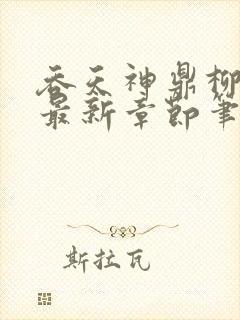 吞天神鼎柳
最新章节笔
斯拉瓦